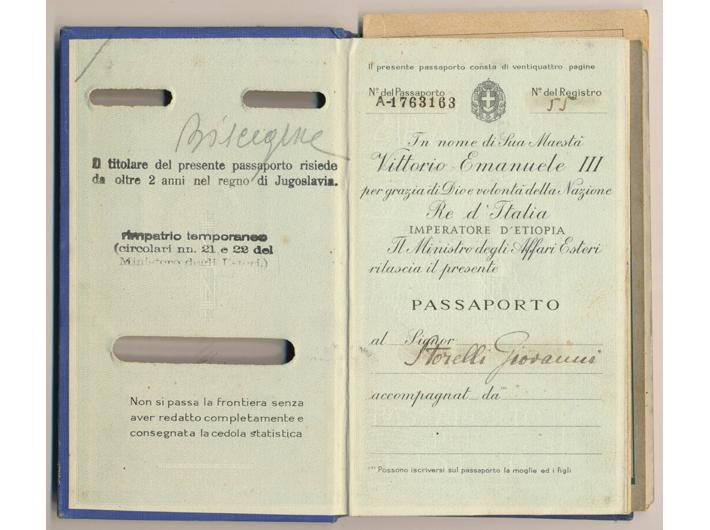 Bisceglie
Il titolare del presente passaporto risiede
da oltre 2 anni nel regno di Jugoslavia.
rimpatrio temporaneo
(circolari nn. 21 e 22 del
Ministero degli Esteri.)
Non si passa la frontiera senza
aver redatto completamente e
consegnata la cedola statistica
Il presente passaporto consta di ventiquattro pagine
N° del Passaporto
A-1763163
N° del Registro
55
In nome di Sua Maestà
Vittorio Emanuele III
per grazia di Dio e volontà della Nazione
Re d'Italia
IMPERATORE D'ETIOPIA
Il Ministro degli Affari Esteri
rilascia il presente
PASSAPORTO
al Signor
Storelli Giovanni
accompagnat da (1)
(1) Possono iscriversi sul passaporto la moglie ed i figli